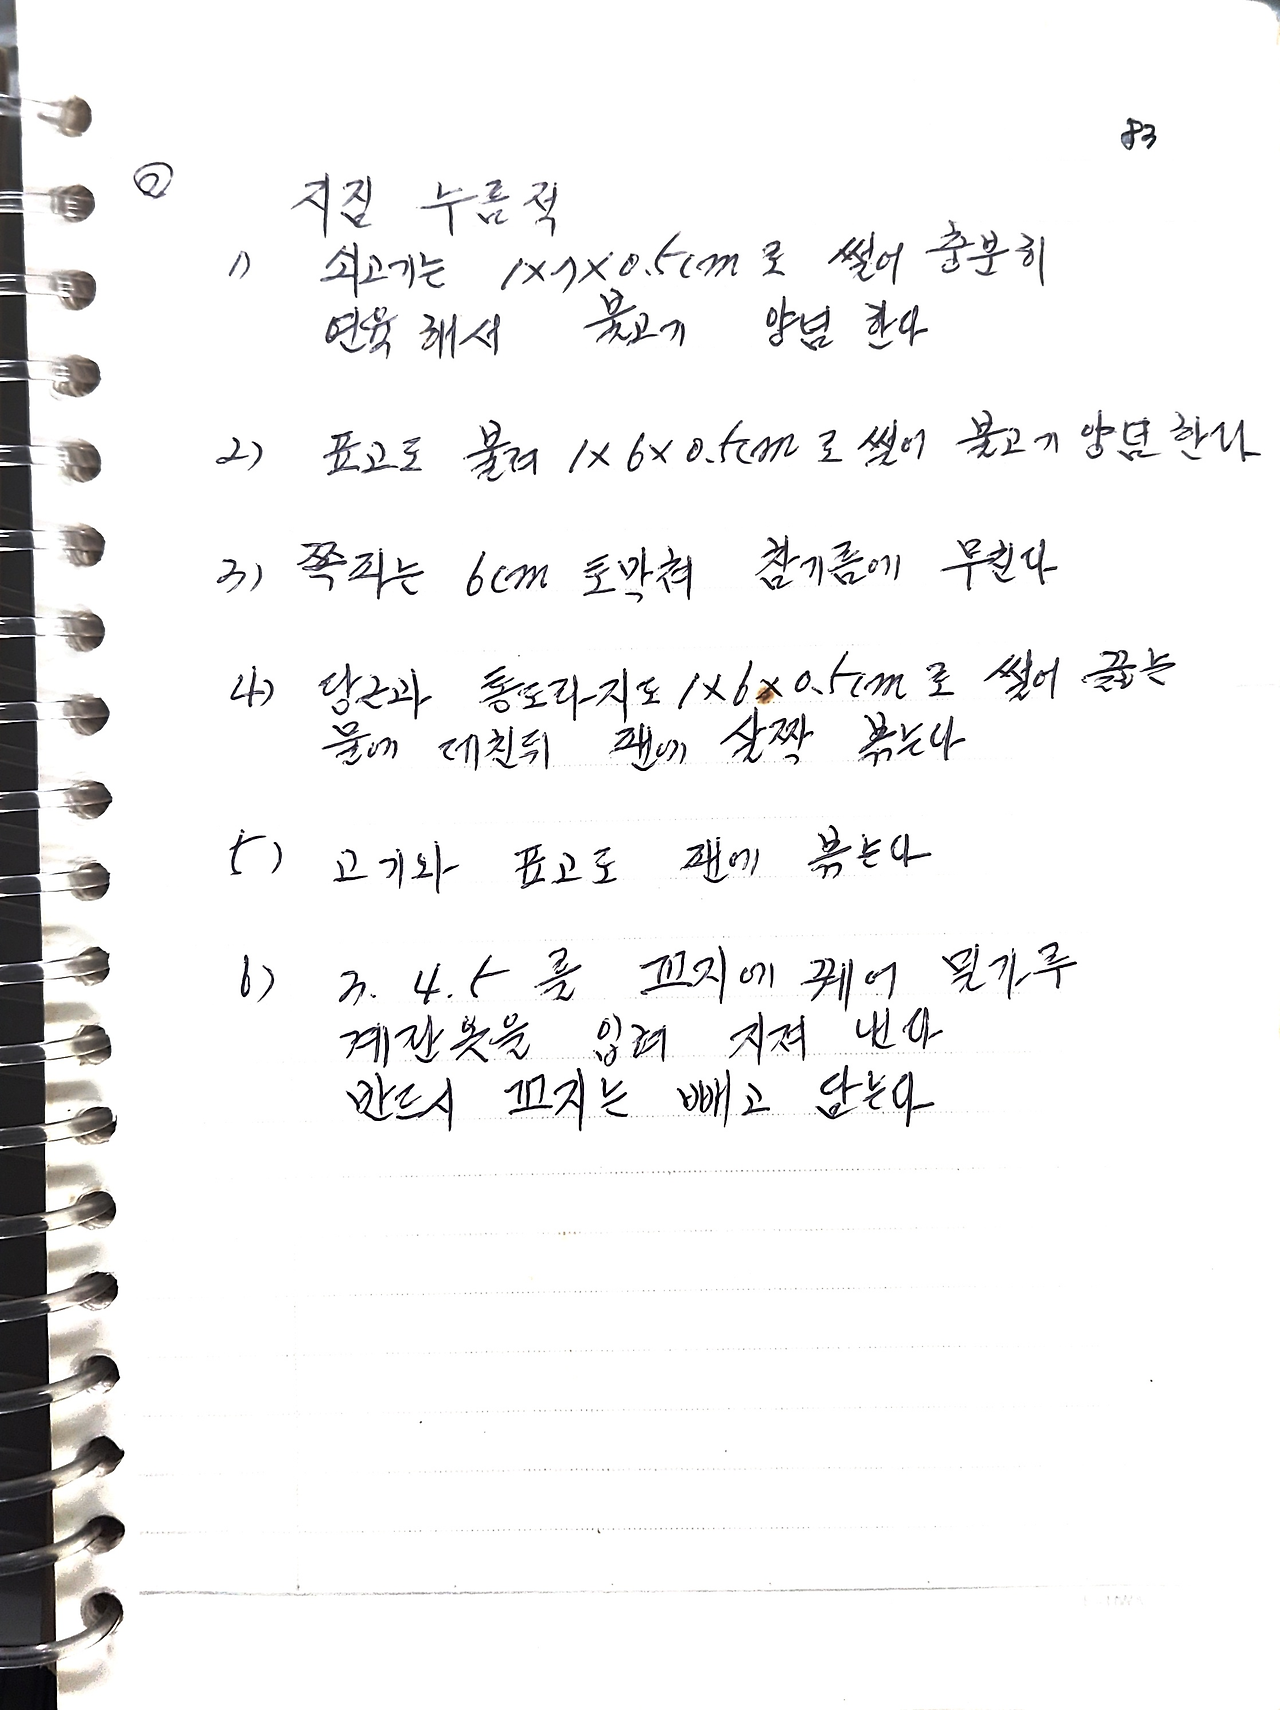 83
② 지짐 누름적
1) 쇠고기는 1×7×0.5cm로 썰어 충분히
연육해서 불고기 양념 한다
2) 표고도 불려 1×6×0.5cm로 썰어 불고기 양념한다
3) 쪽파는 6cm 토막쳐 참기름에 무친다
4) 당근과 통도라지도 1×6×0.5cm로 썰어 끓는
물에 데친뒤 팬에 살짝 볶는다
5) 고기와 표고도 팬에 볶는다
6) 3. 4. 5 를 꼬지에 꿰어 밀가루
계란옷을 입혀 지져 낸다
반드시 꼬지는 빼고 담는다